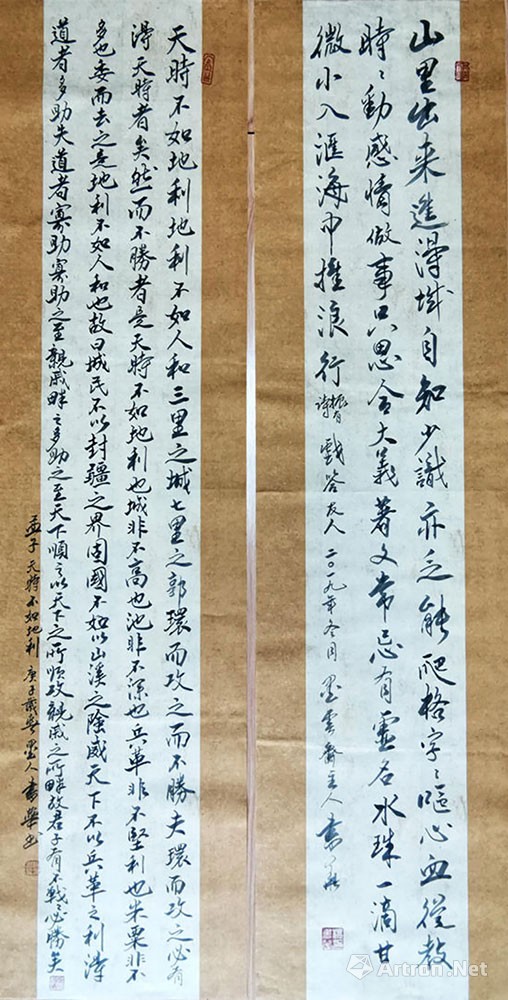 山里出来進得城自知少識亦乏能爬格字々嘔心血從教
時々動感情做事只思含大義著文常忌有虛名水珠一滴甘
微小入滙海中推浪行 詩 戲答友人 二〇一九年冬月 墨雲齋主人
天時不如地利地利不如人和三里之城七里之郭環而攻之而不勝夫環而攻之必有
得天時者矣然而不勝者是天時不如地利也城非不高也池非不深也兵革非不堅利也米粟非不
多也委而去之是地利不如人和也故曰城民不以封疆之界固國不如以山溪之險威天下不以兵革之利得
道者多助失道者寡助寡助之至親戚畔之多助之至天下順之以天下之所順攻親戚之所畔故君子有不戰々必勝矣
孟子 天時不如地利 庚子歲春 墨人書華書
Artron.Net